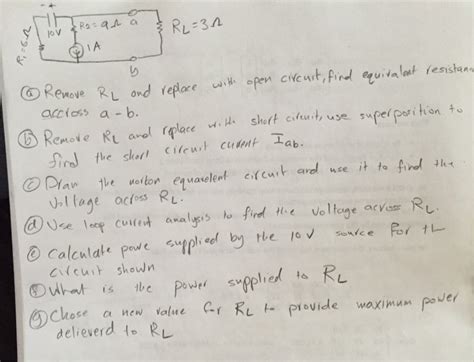 - +
10V
R2=9Ω
a
RL=3Ω
R1=6Ω
1A
b
(a) Remove RL and replace with open circuit, find equivalent resistanc
accross a-b.
(b) Remove RL and rplace with short circuit, use superposition to
find the short circuit current Iab.
(c) Draw the norton equavelent circuit and use it to find the
voltage across RL.
(d) Use loop current analysis to find the voltage across RL.
(e) Calculate powe supplied by the 10V source for th
circuit shown
(f) What is the power supplied to RL
(g) Chose a new value for RL to provide maximum power
delieverd to RL